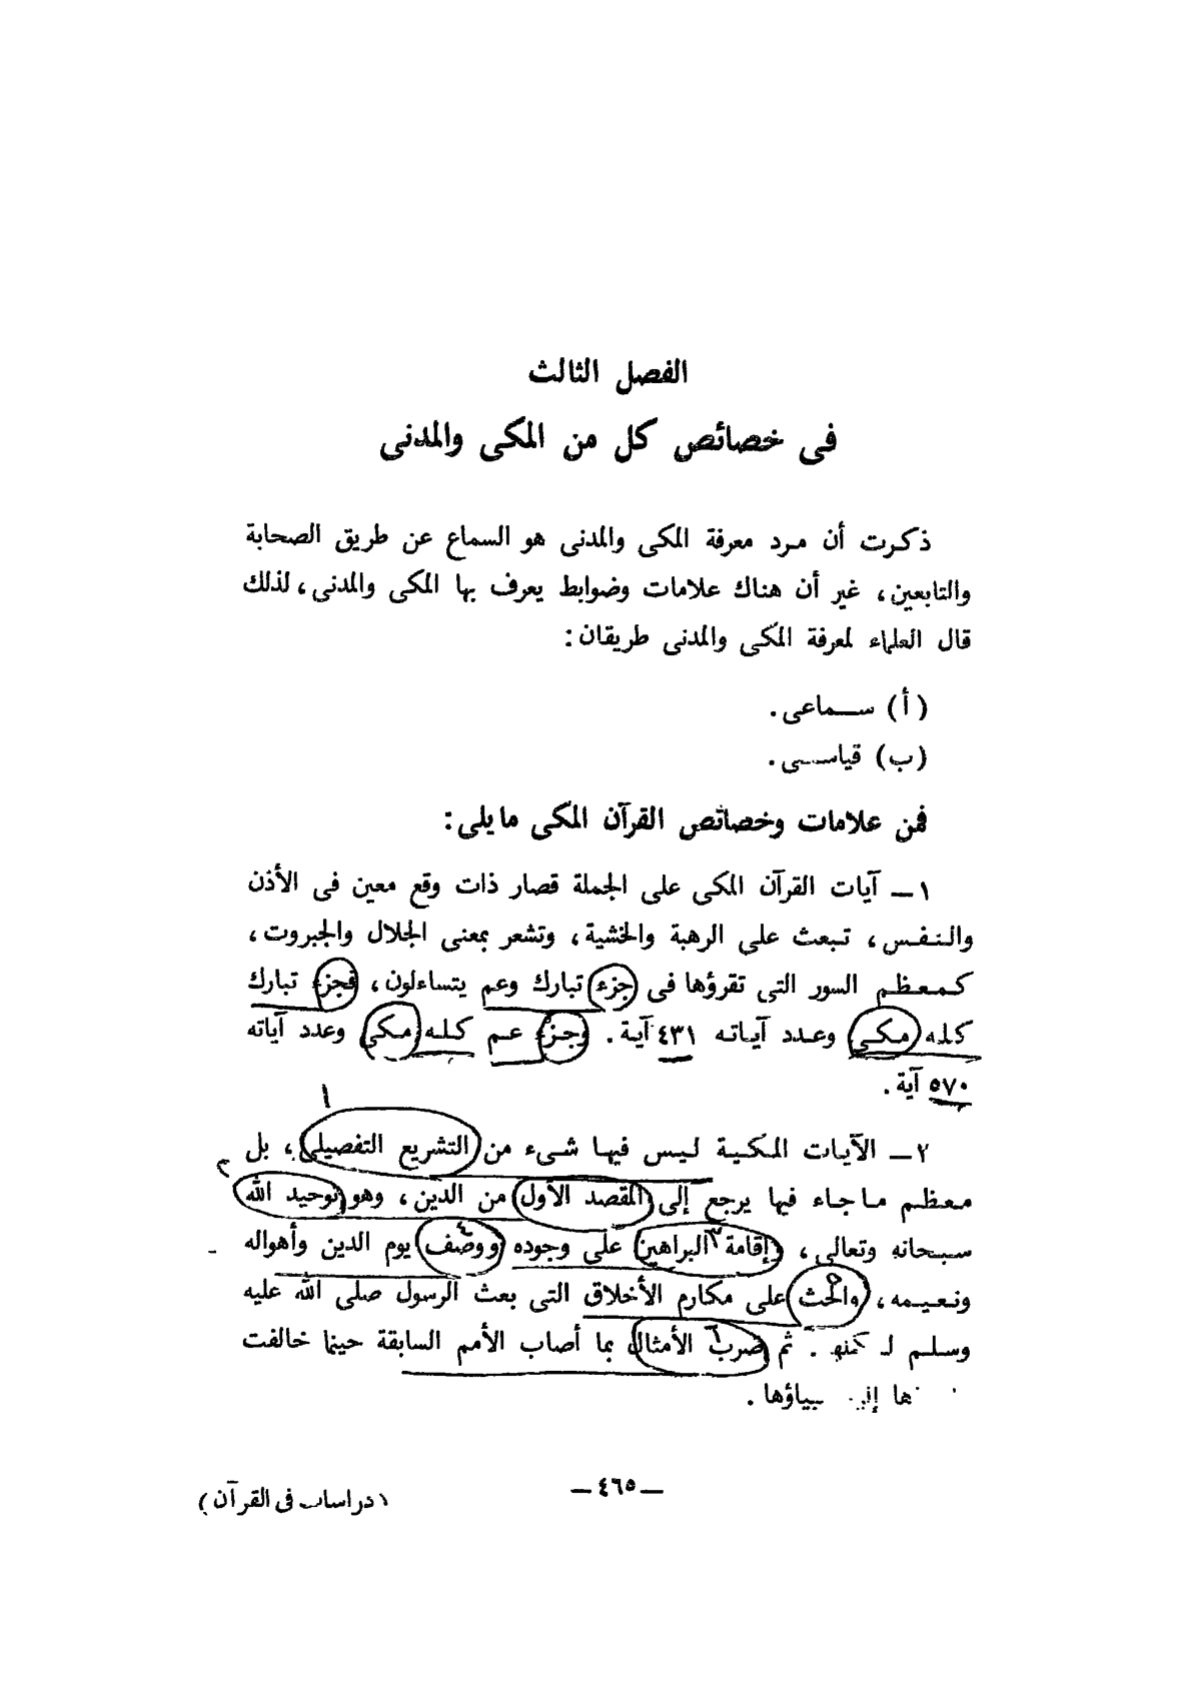 الفصل الثالث
فى خصائص كل من المكى والمدنى
ذكرت أن مرد معرفة المكى والمدنى هو السماع عن طريق الصحابة
والتابعين، غير أن هناك علامات وضوابط يعرف بها المكى والمدنى، لذلك
قال العلماء لمعرفة المكى والمدنى طريقان:
(أ) سماعى.
(ب) قياسى.
فمن علامات وخصائص القرآن المكى مايلى:
١ـ آيات القرآن المكى على الجملة قصار ذات وقع معين فى الأذن
والنفس، تبعث على الرهبة والخشية، وتشعر بمعنى الجلال والجبروت،
كمعظم السور التى تقرؤها فى جزء تبارك وعم يتساءلون، فجزء تبارك
كله مكى وعدد آياته ٤٣١ آية. وجزء عم كله مكى وعدد آياته
٥٧٠ آية.
١
٢ـ الآيات المكية ليس فيها شىء من التشريع التفصيلى، بل
٢
معظم ماجاء فيها يرجع إلى المقصد الأول من الدين، وهو توحيد الله
سبحانه وتعالى، وإقامة ٣ البراهين على وجوده ٤ ووصف يوم الدين وأهواله
ونعيمه، ٥ والحث على مكارم الأخلاق التى بعث الرسول صلى الله عليه
وسلم . ثم ضرب ٦ الأمثال بما أصاب الأمم السابقة حينما خالفت
ـ ٤٦٥ ـ
(دراسات فى القرآن)